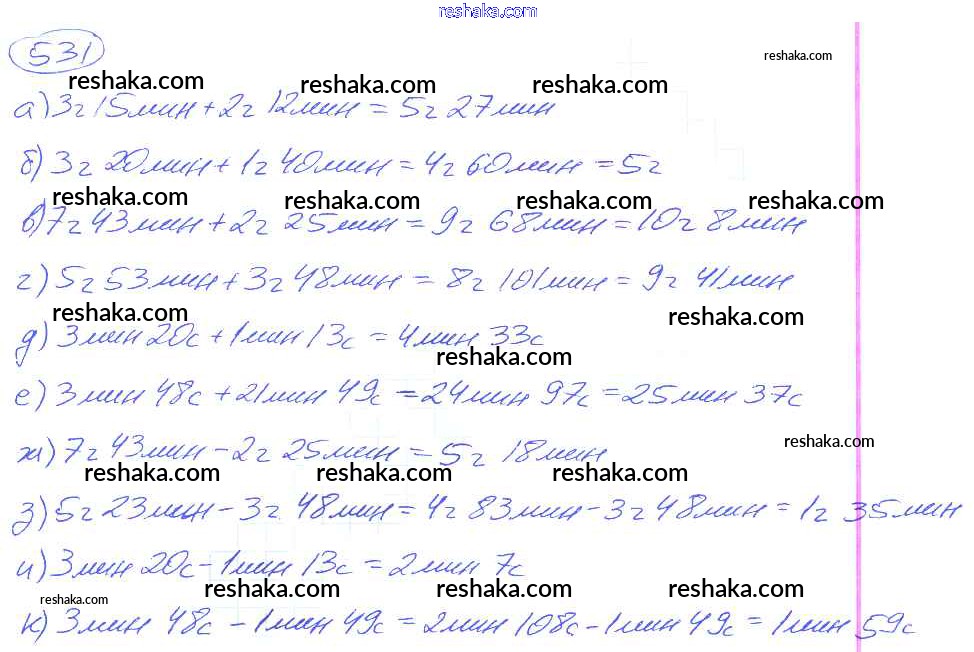 reshaka.com
531
reshaka.com
reshaka.com reshaka.com reshaka.com
а) 3ч 15мин + 2ч 12мин = 5ч 27мин
б) 3ч 20мин + 1ч 40мин = 4ч 60мин = 5ч
reshaka.com reshaka.com reshaka.com reshaka.com
в) 7ч 43мин + 2ч 25мин = 9ч 68мин = 10ч 8мин
г) 5ч 53мин + 3ч 48мин = 8ч 101мин = 9ч 41мин
reshaka.com reshaka.com
д) 3мин 20с + 1мин 13с = 4мин 33с
reshaka.com
е) 3мин 48с + 21мин 49с = 24мин 97с = 25мин 37с
reshaka.com
ж) 7ч 43мин - 2ч 25мин = 5ч 18мин
reshaka.com reshaka.com reshaka.com
з) 5ч 23мин - 3ч 48мин = 4ч 83мин - 3ч 48мин = 1ч 35мин
и) 3мин 20с - 1мин 13с = 2мин 7с
reshaka.com reshaka.com reshaka.com reshaka.com
к) 3мин 48с - 1мин 49с = 2мин 108с - 1мин 49с = 1мин 59с